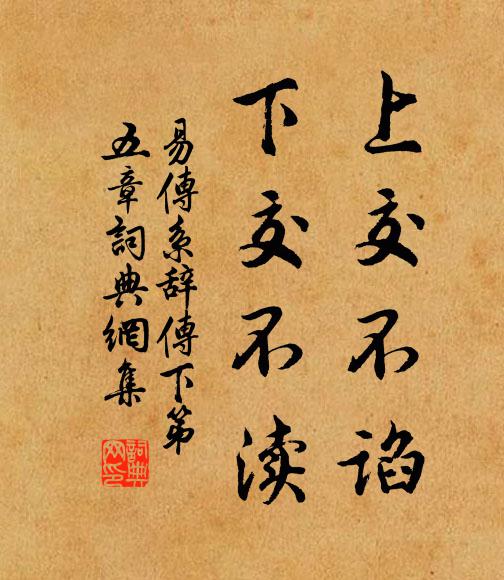 上交不谄
下交不渎
易傳系辞傳下第
五章詞典網集
詞典
网印